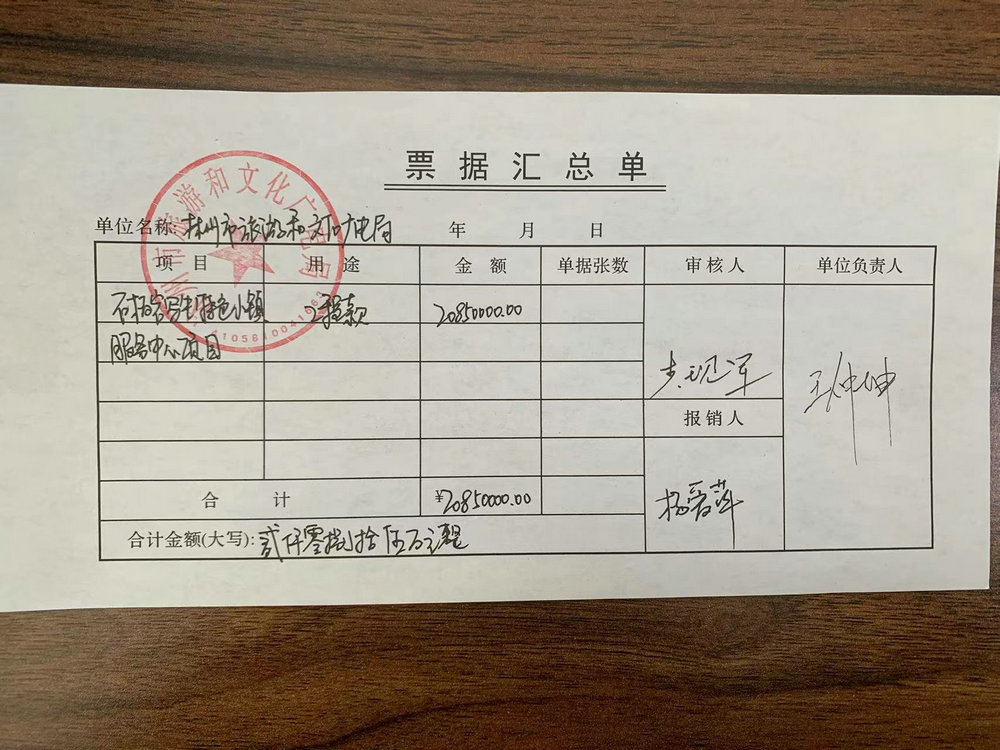 票据汇总单
单位名称: 林州市旅游和文化广电局 年 月 日
项目 用途 金额 单据张数 审核人 单位负责人
石板岩写生特色小镇 工程款 20850000.00
服务中心项目
报销人
杨爱萍
合计 ¥20850000.00
合计金额(大写): 贰仟零捌拾伍万元整
林州市旅游和文化广电局